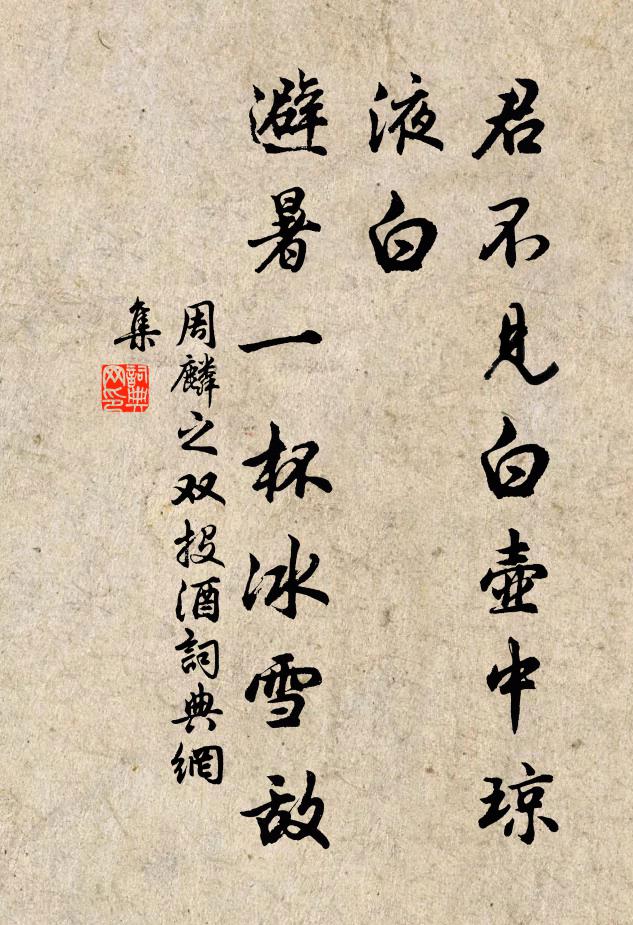 君不见白壶中琼
液白
避暑一杯冰雪敌
周麟之双投酒詞典網
集
詞典
网印